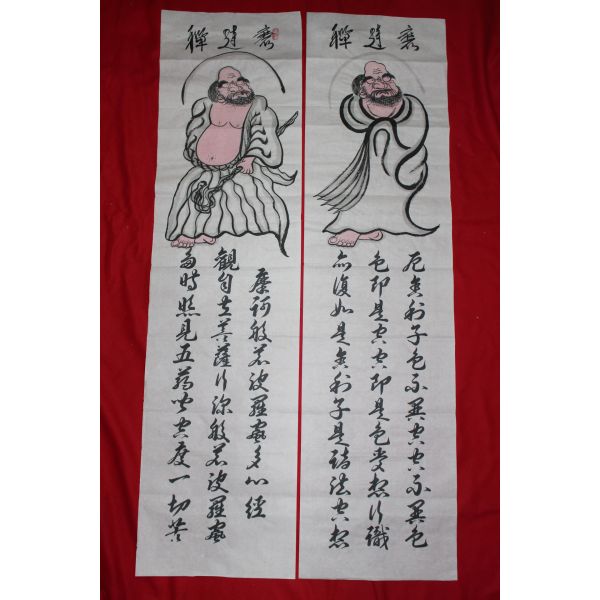 摩訶般若波羅蜜多心經
觀自在菩薩行深般若波羅蜜
多時照見五蘊皆空度一切苦
厄舍利子色不異空空不異色
色即是空空即是色受想行識
亦復如是舍利子是諸法空想